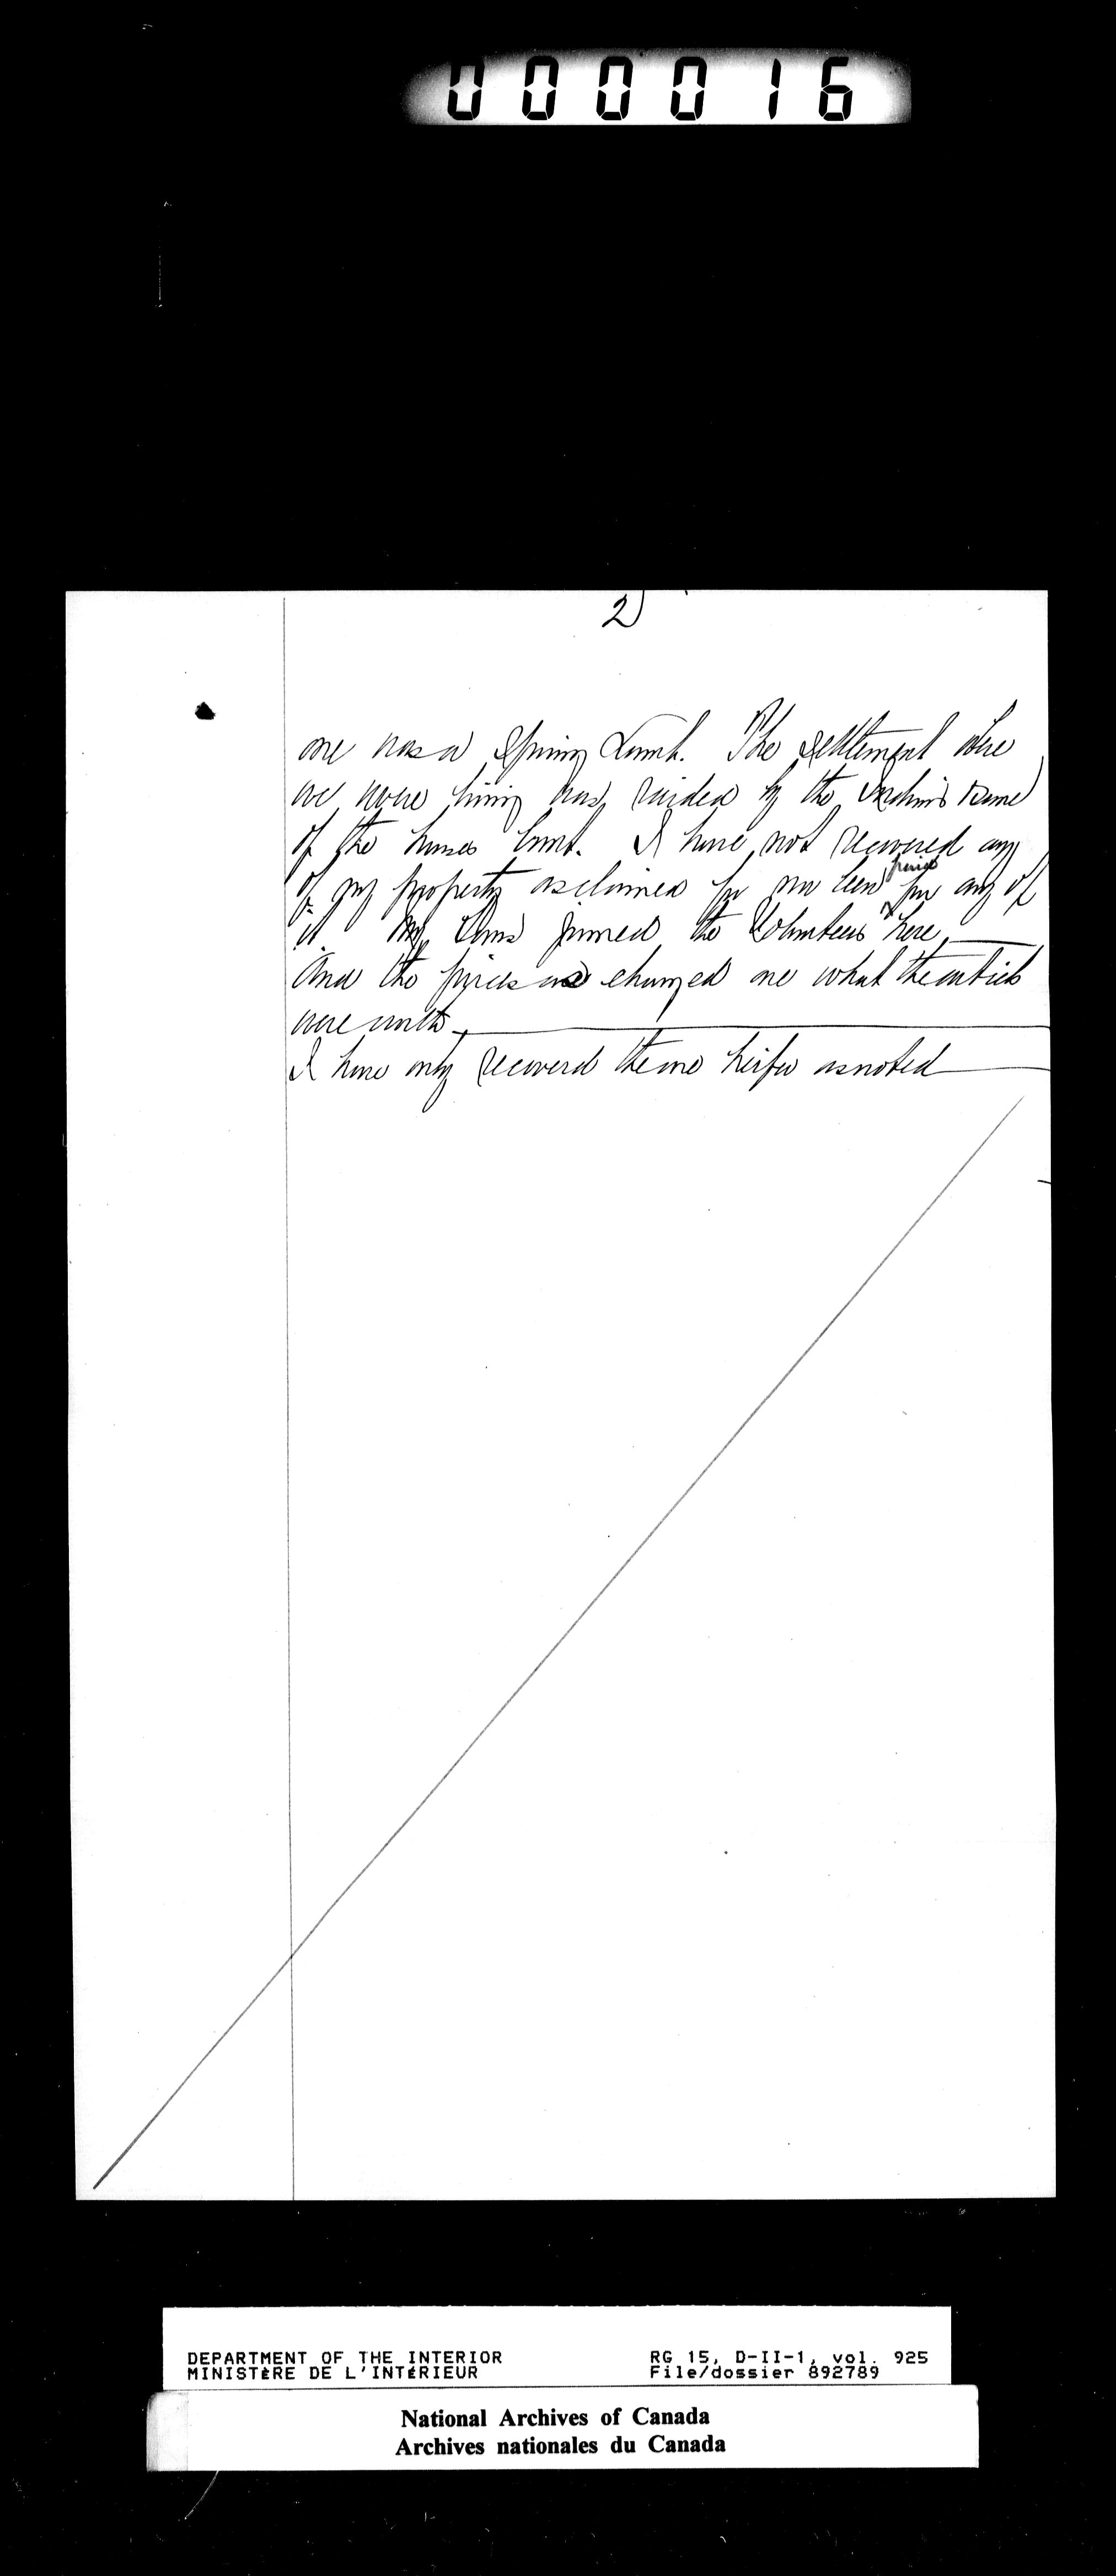 000016
2)
one was a Spring Lamb. The settlement where
we were living was raided by the Indians & some
of the houses burnt. I have not recovered any
paid
of my property as claimed for nor been for any of
it My Sons joined the Volunteers here
And the prices as charged are what the articles
were worth
I have only recovered the one heifer as noted
DEPARTMENT OF THE INTERIOR RG 15, D-II-1, vol. 925
MINISTÈRE DE L'INTÉRIEUR File/dossier 892789
National Archives of Canada
Archives nationales du Canada